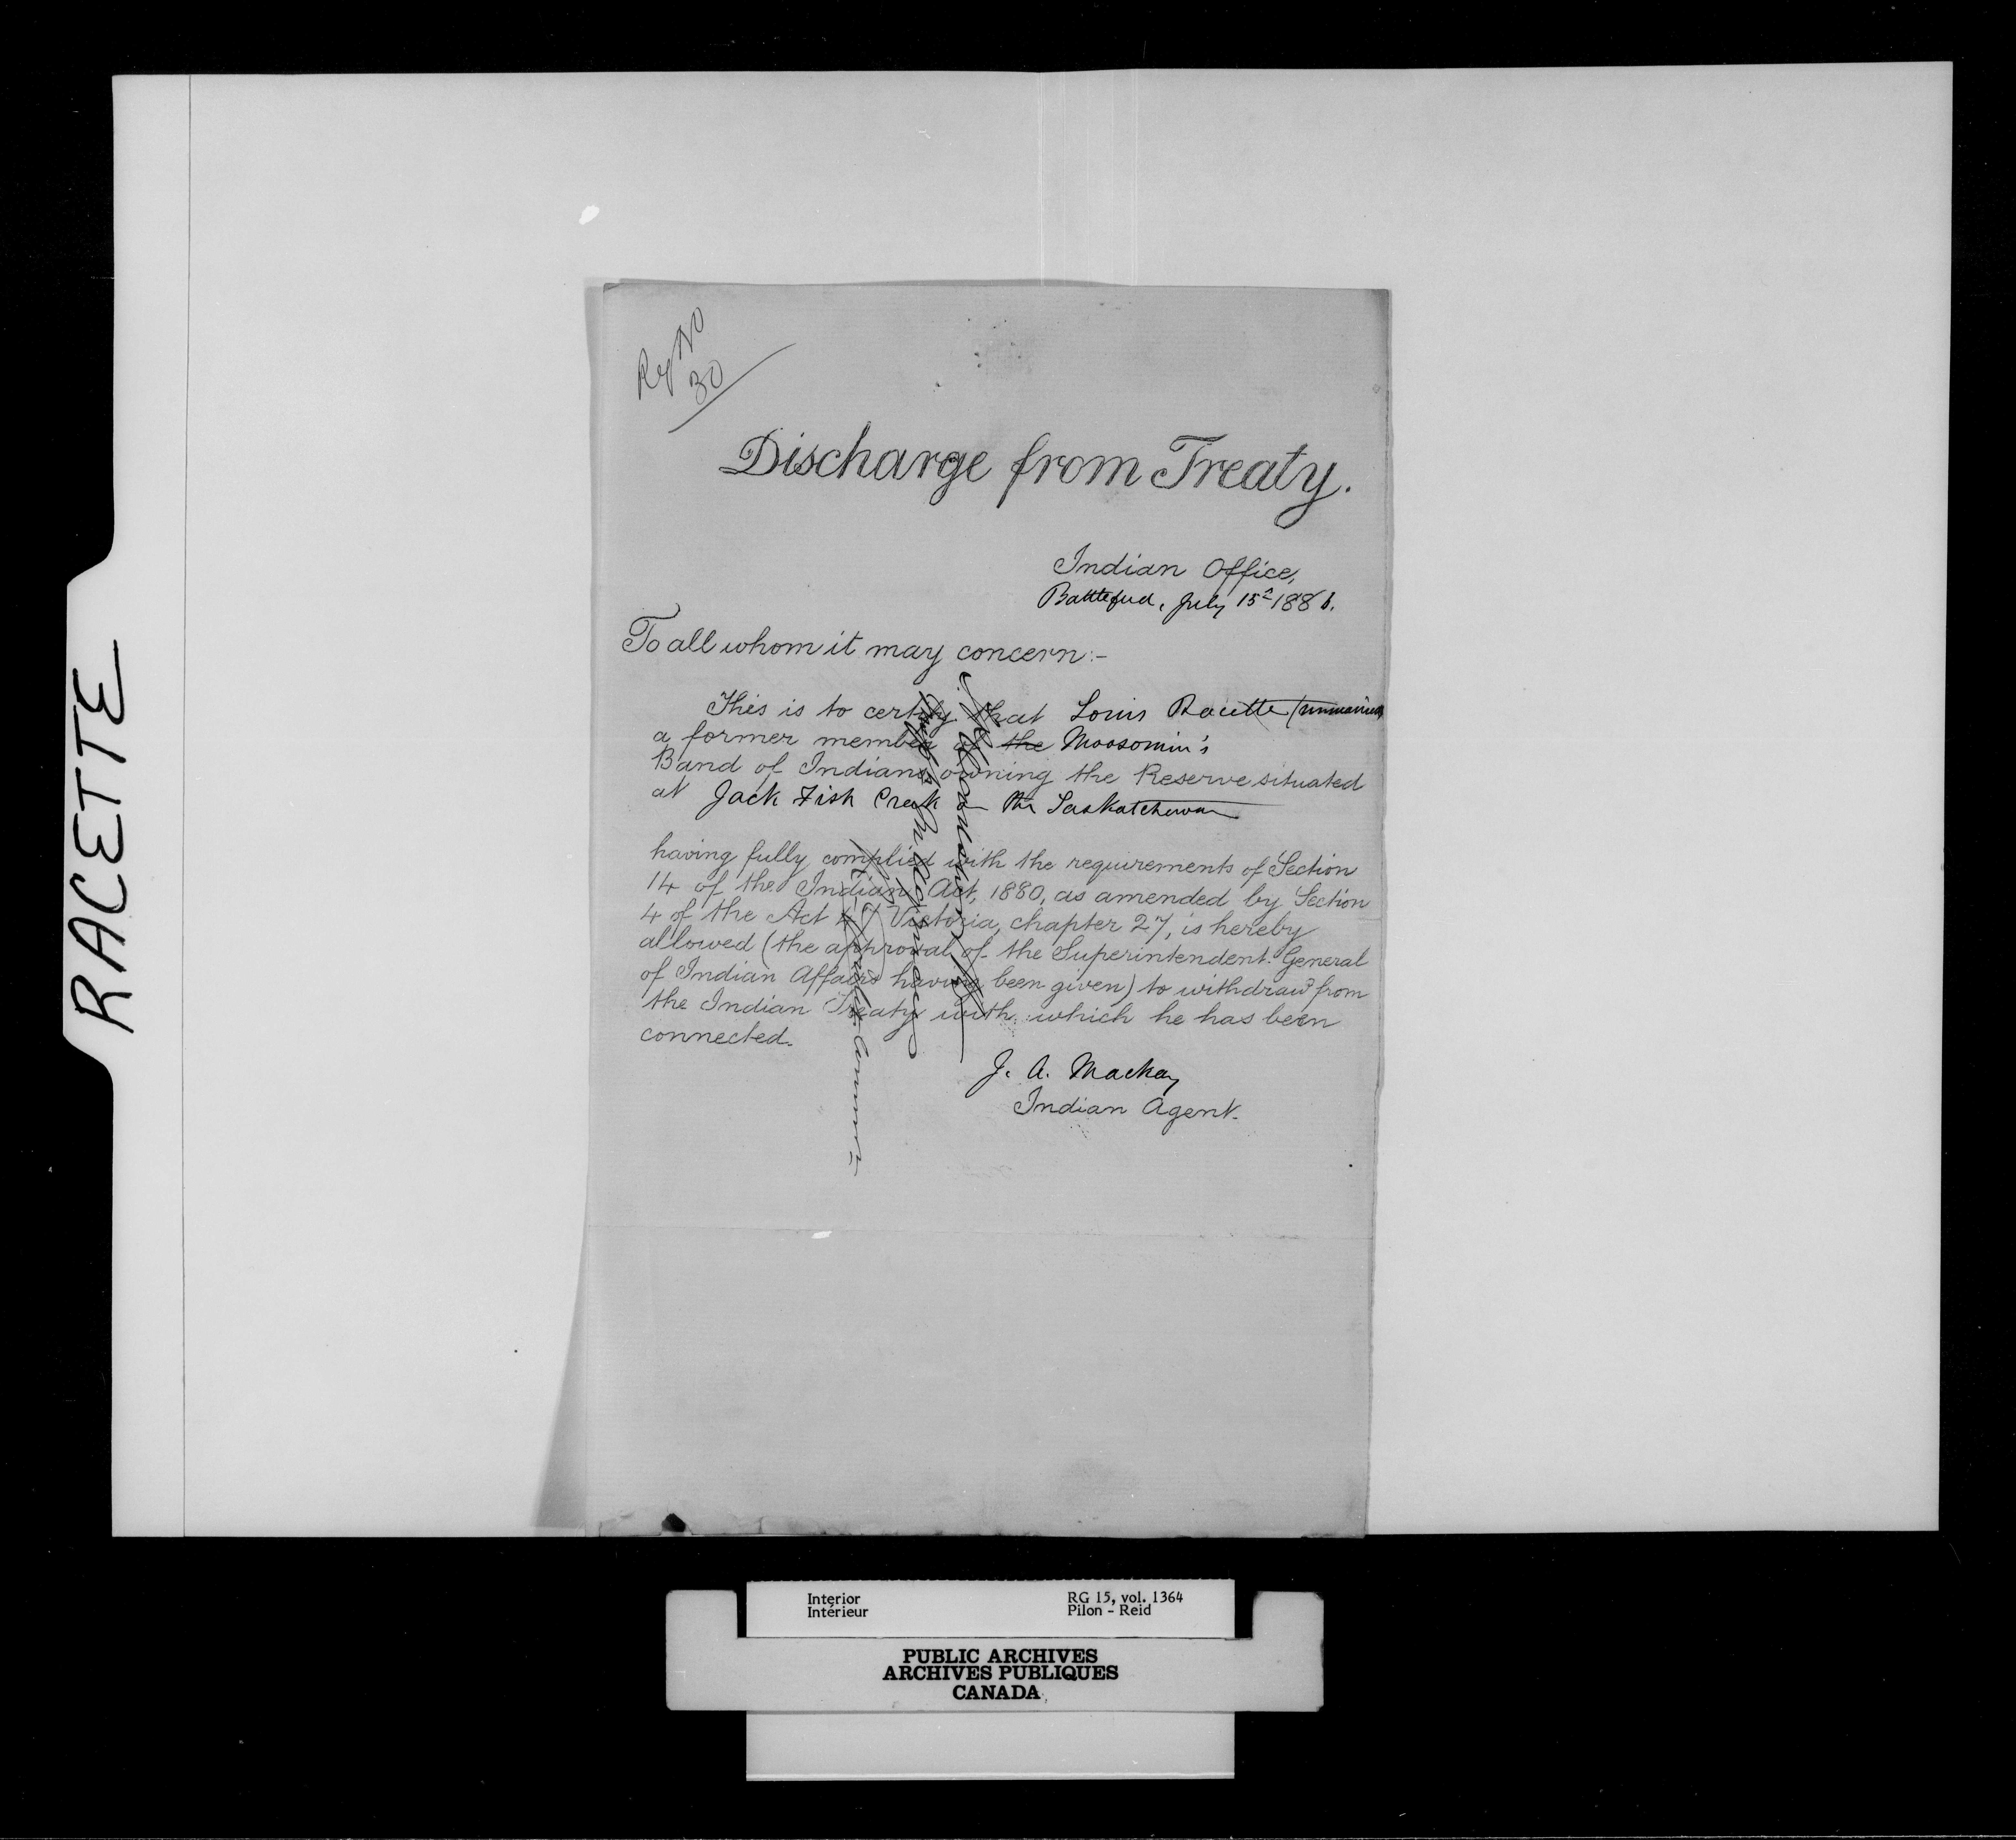 RACETTE
Reg No
30
Discharge from Treaty.
Indian Office,
Battleford, July 15th 1886.
To all whom it may concern:-
This is to certify that Louis Racette (unmarried)
a former member of the Moosomin's
Band of Indians owning the Reserve situated
at Jack Fish Creek on the Saskatchewan
having fully complied with the requirements of Section
14 of the Indian Act, 1880, as amended by Section
4 of the Act 47 Victoria, chapter 27, is hereby
allowed (the approval of the Superintendent General
of Indian Affairs having been given) to withdraw from
the Indian Treaty with which he has been
connected.
J. A. Mackay
Indian Agent.
Interior
Intérieur
RG 15, vol. 1364
Pilon - Reid
PUBLIC ARCHIVES
ARCHIVES PUBLIQUES
CANADA